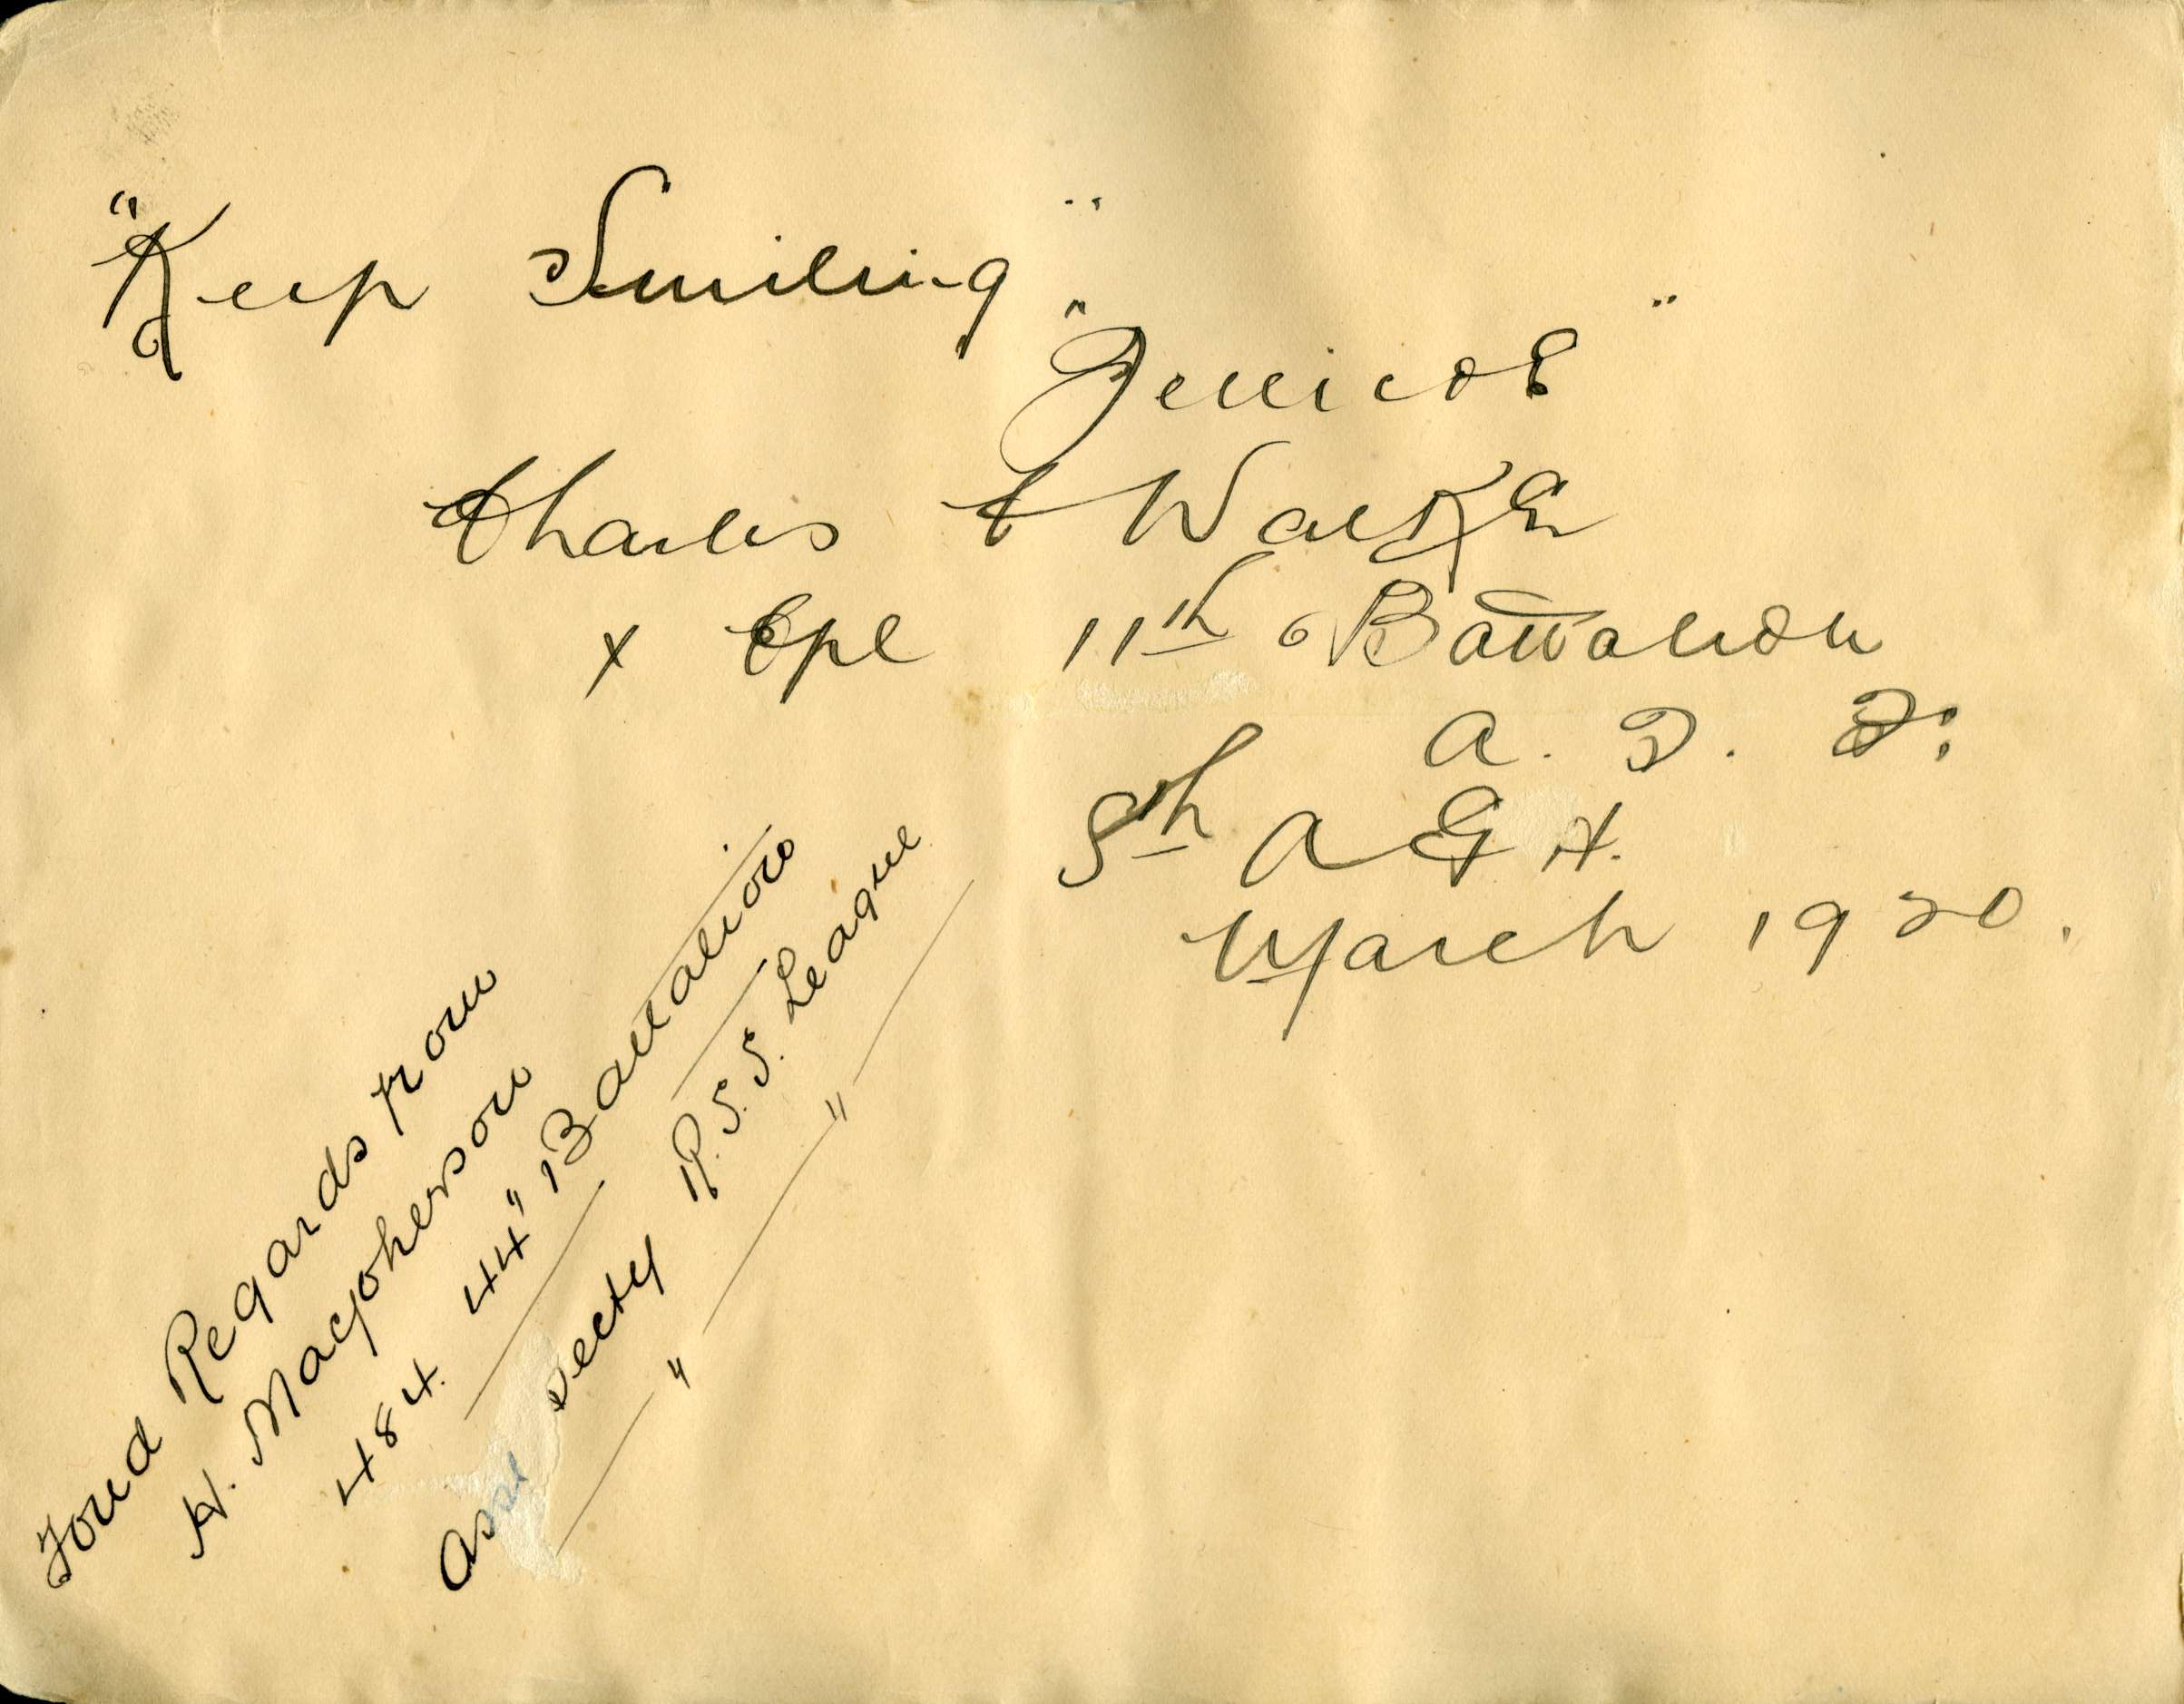 "Keep Smiling"
"Jellicoe"
Charles A Walker
x Cpl 11th Battalion
A. I. F.
8th A G H.
March 1920.
Fond Regards from
H. Macpherson
484. 44" Battalion
Asst Secty R.S.S. League
" "